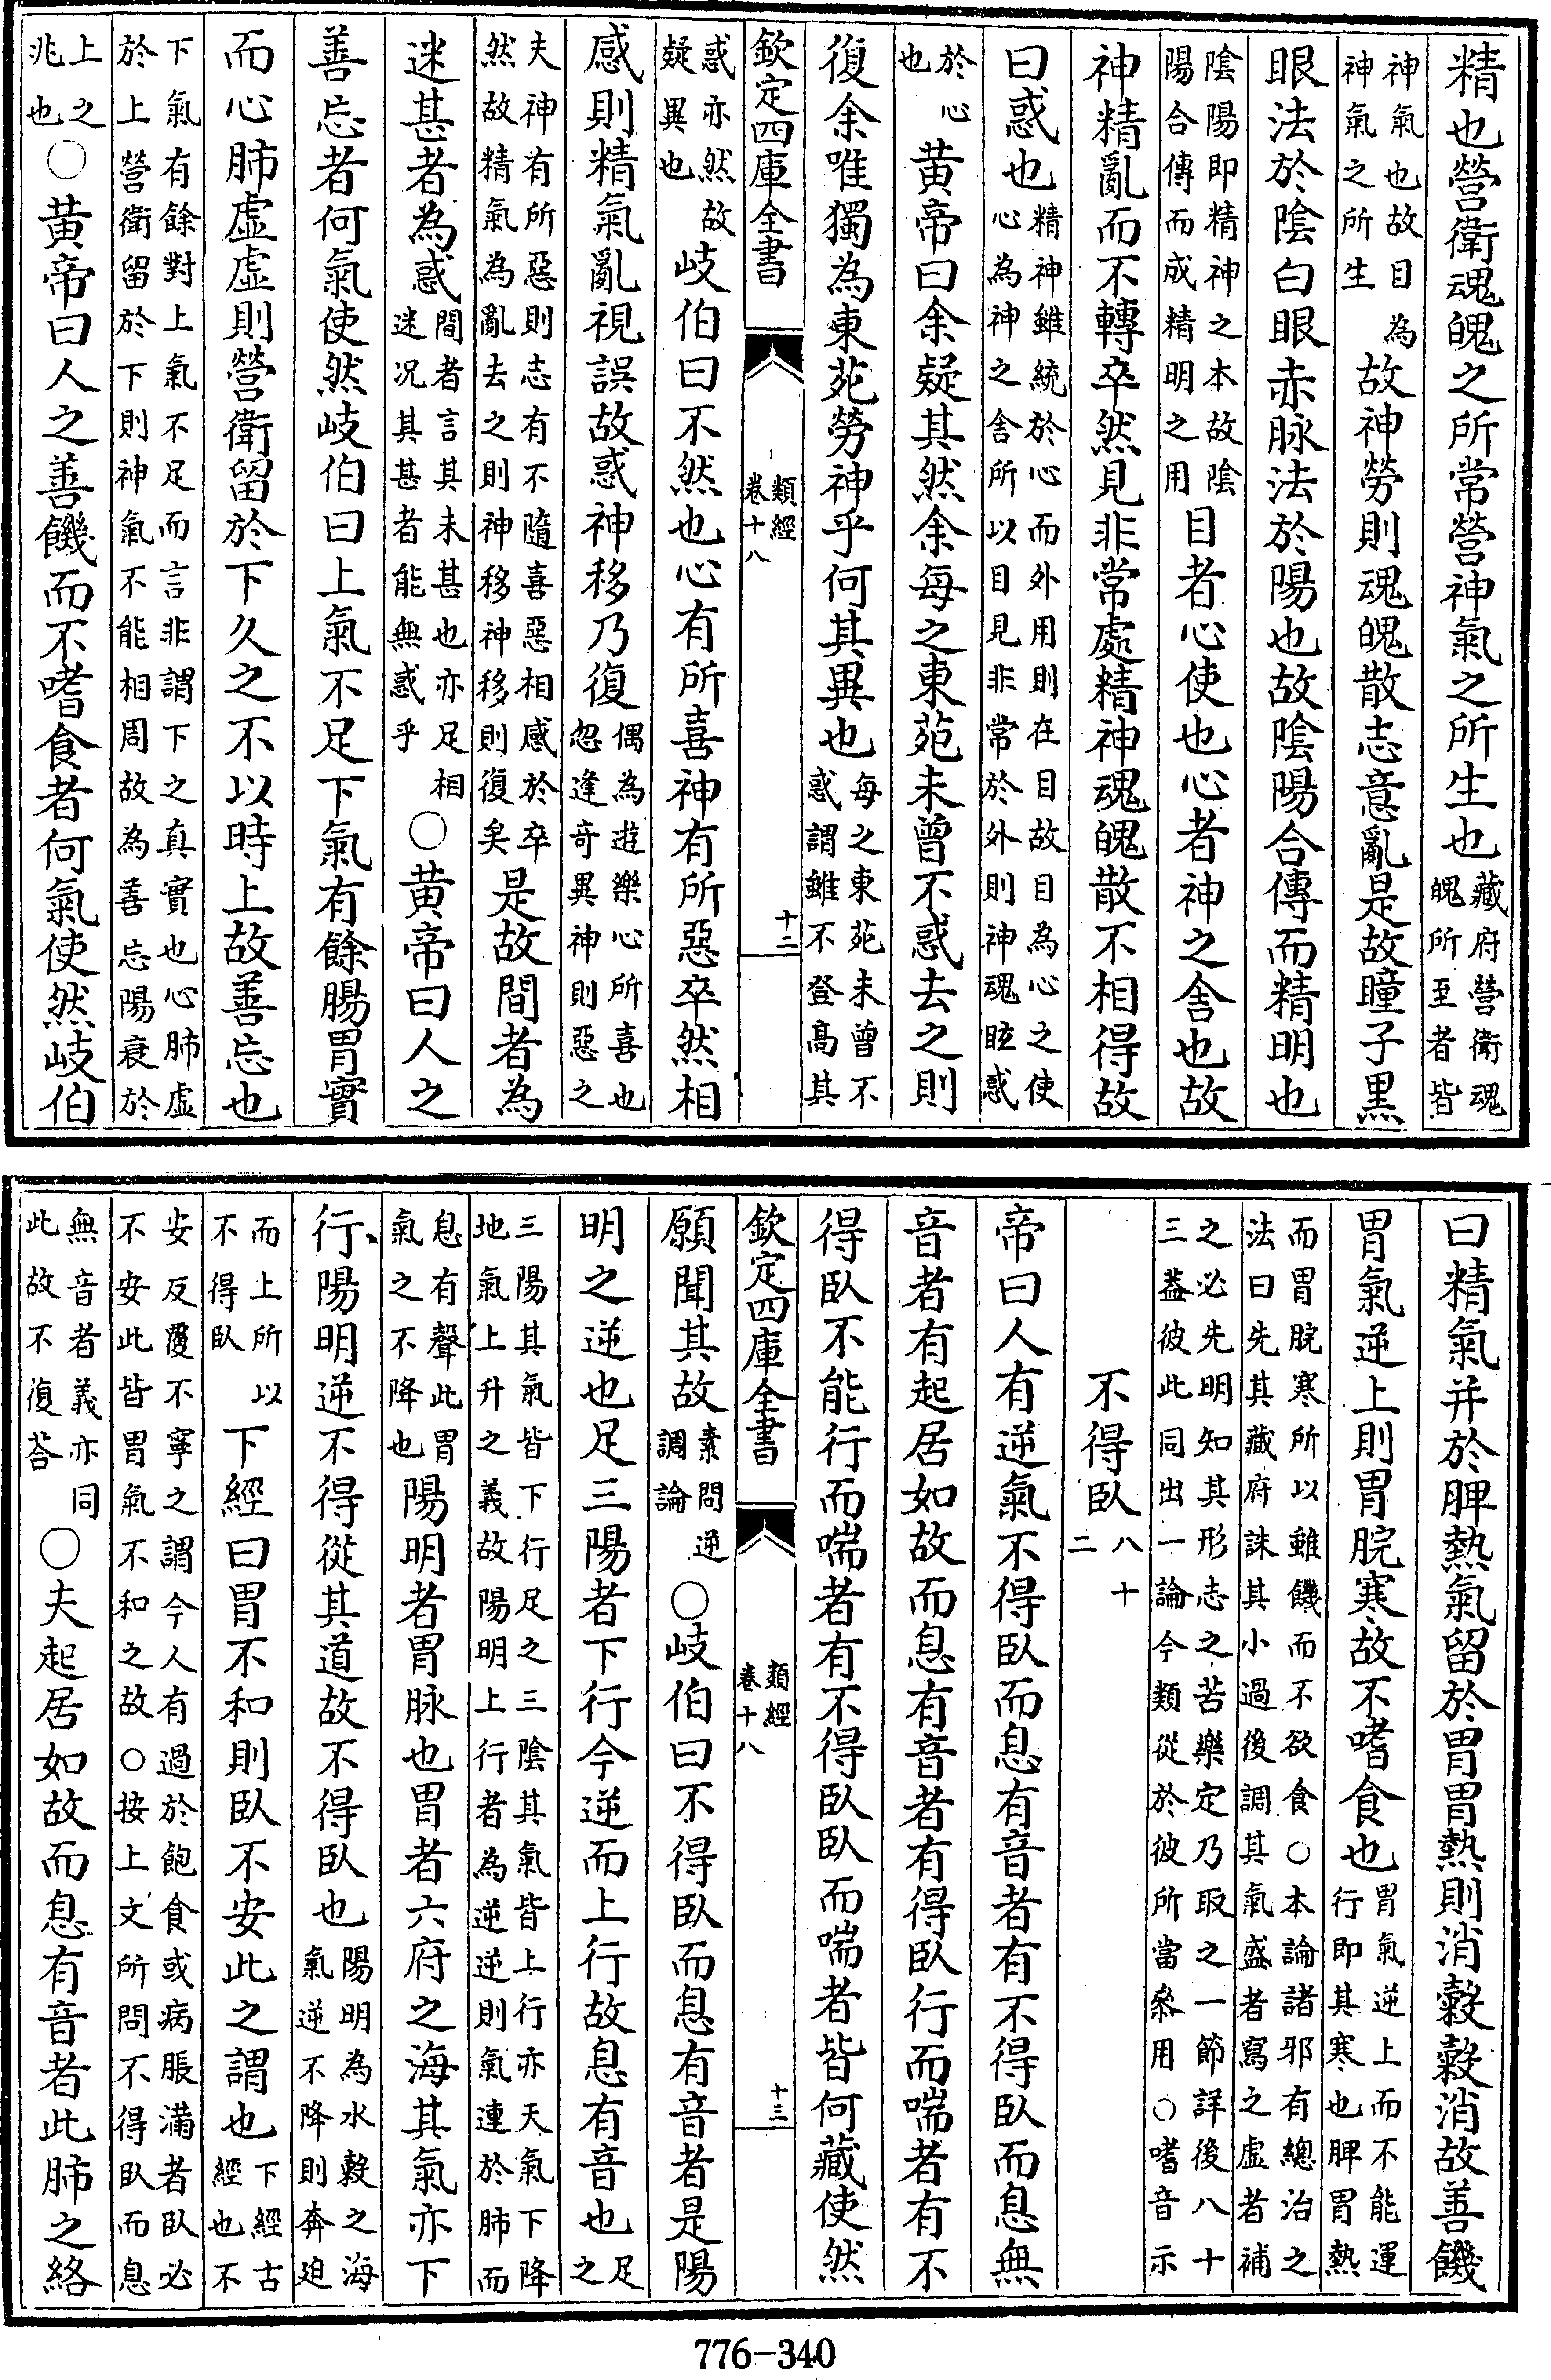 精也營衛魂魄之所常營神氣之所生也藏府營衛魂魄所至者皆
神氣也故目為神氣之所生故神勞則魂魄散志意亂是故瞳子黑
眼法於陰白眼赤脉法於陽也故陰陽合傳而精明也
陰陽即精神之本故陰陽合傳而成精明之用目者心使也心者神之舍也故
神精亂而不轉卒然見非常處精神魂魄散不相得故
曰惑也精神雖統於心而外用則在目故目為心之使心為神之舍所以目見非常於外則神魂眩惑
於心也黄帝曰余疑其然余每之東苑未曾不惑去之則
復余唯獨為東苑勞神乎何其異也每之東苑未曾不惑謂雖不登高其
欽定四庫全書 類經卷十八 十二
惑亦然故疑異也岐伯曰不然也心有所喜神有所惡卒然相
感則精氣亂視誤故惑神移乃復偶為遊樂心所喜也忽逢奇異神則惡之
夫神有所惡則志有不隨喜惡相感於卒然故精氣為亂去之則神移神移則復矣是故間者為
迷甚者為惑間者言其未甚也亦足相迷况其甚者能無惑乎○黄帝曰人之
善忘者何氣使然岐伯曰上氣不足下氣有餘腸胃實
而心肺虛虛則營衛留於下久之不以時上故善忘也
下氣有餘對上氣不足而言非謂下之真實也心肺虛於上營衛留於下則神氣不能相周故為善忘陽衰於
上之兆也○黄帝曰人之善饑而不嗜食者何氣使然岐伯
曰精氣并於脾熱氣留於胃胃熱則消穀穀消故善饑
胃氣逆上則胃脘寒故不嗜食也胃氣逆上而不能運行即其寒也脾胃熱
而胃脘寒所以雖饑而不欲食○本論諸邪有總治之法曰先其藏府誅其小過後調其氣盛者寫之虛者補
之必先明知其形志之苦樂定乃取之一節詳後八十三葢彼此同出一論今類從於彼所當叅用○嗜音示
不得臥八十二
帝曰人有逆氣不得臥而息有音者有不得臥而息無
音者有起居如故而息有音者有得臥行而喘者有不
得臥不能行而喘者有不得臥臥而喘者皆何藏使然
欽定四庫全書 類經卷十八 十三
願聞其故素問逆調論○岐伯曰不得臥而息有音者是陽
明之逆也足三陽者下行今逆而上行故息有音也足之
三陽其氣皆下行足之三陰其氣皆上行亦天氣下降地氣上升之義故陽明上行者為逆逆則氣連於肺而
息有聲此胃氣之不降也陽明者胃脉也胃者六府之海其氣亦下
行陽明逆不得從其道故不得臥也陽明為水穀之海氣逆不降則奔迫
而上所以不得臥下經曰胃不和則臥不安此之謂也下經古經也不
安反覆不寧之謂今人有過於飽食或病脹滿者臥必不安此皆胃氣不和之故○按上文所問不得臥而息
無音者義亦同此故不復荅○夫起居如故而息有音者此肺之絡
776-340